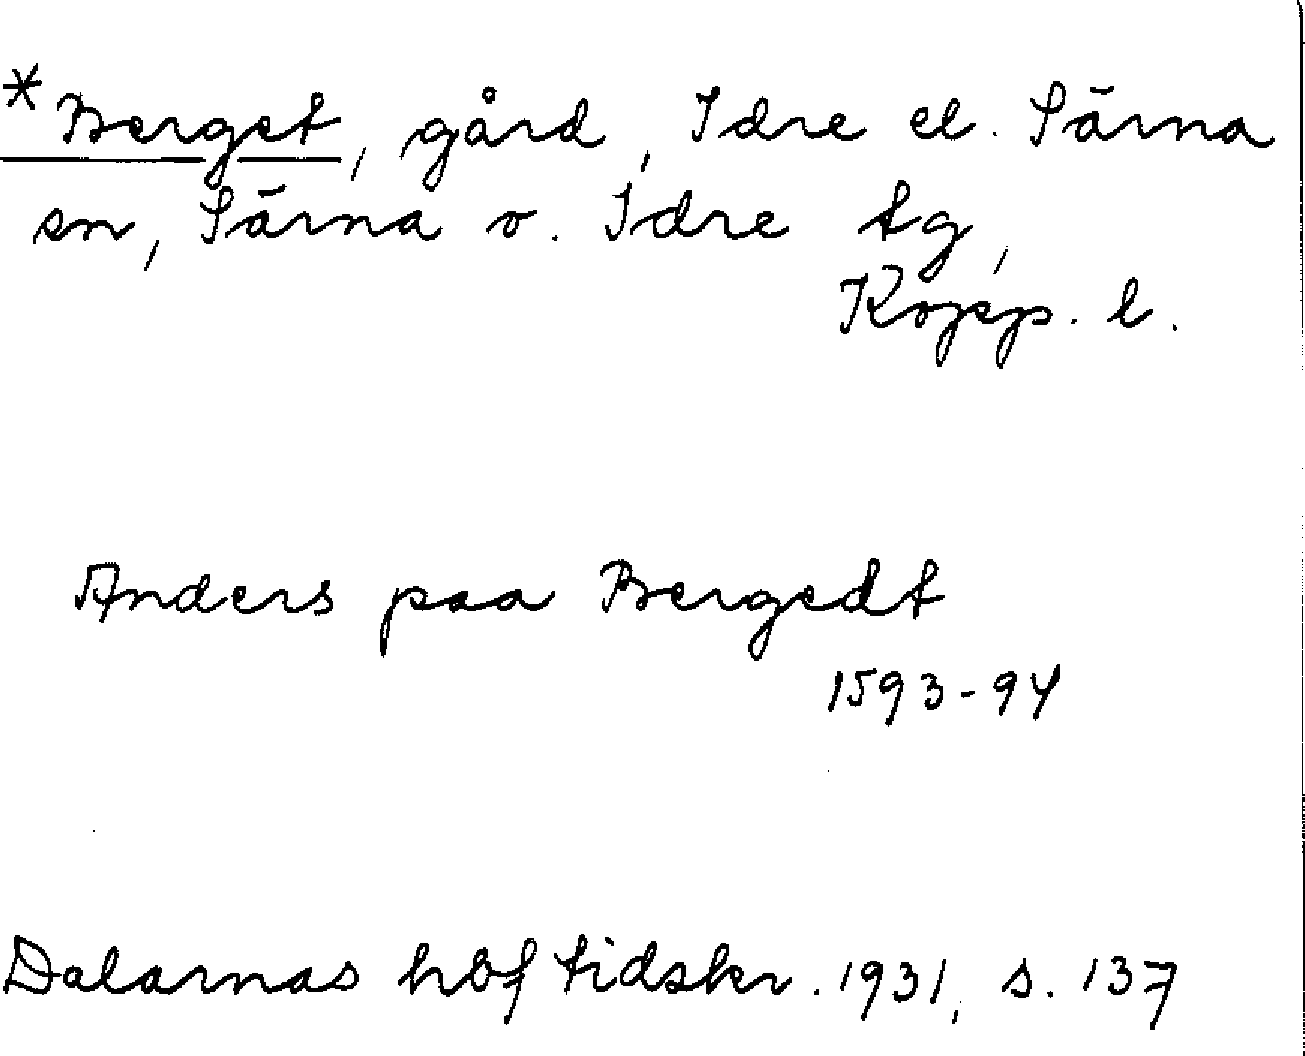 *Berget, gård, Idre el. Särna
sn, Särna o. Idre tg,
Kopp. l.
Anders paa Bergedt
1593-94
Dalarnas hbf tidskr. 1931, s. 137